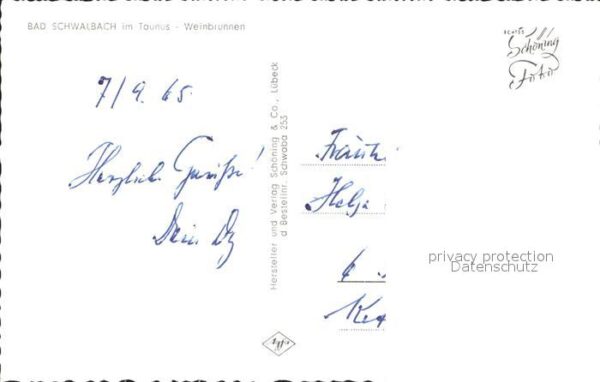 BAD SCHWALBACH im Taunus - Weinbrunnen
ECHTES
Schöning
Foto
7/9.65
Herzliche Grüße!
Dein
Hersteller und Verlag Schöning & Co., Lübeck
d Bestellnr. Schwaba 255
Helga
privacy protection
Datenschutz
Agfa